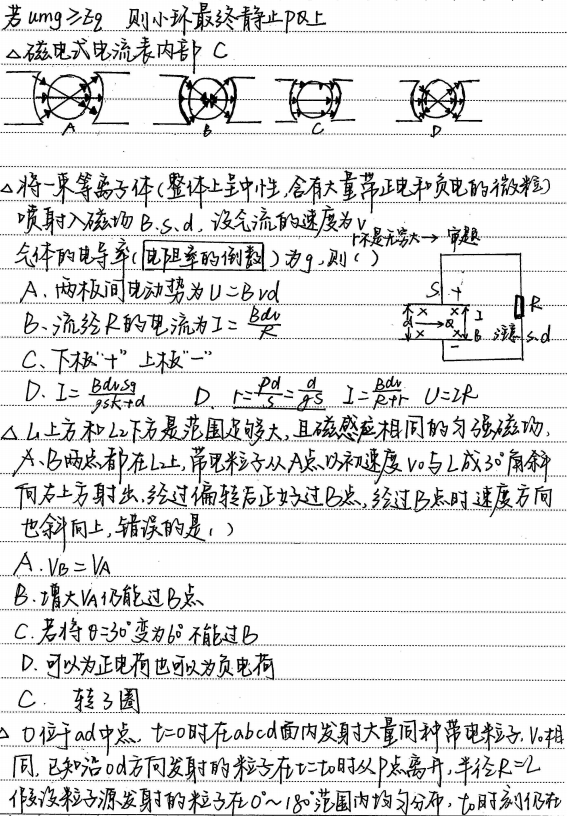 若umg≥Eq 则小环最终静止P点上
△磁电式电流表内部 C
A B C D
△将一束等离子体(整体上呈中性,含有大量带正电和负电的微粒)
喷射入磁场B.S.d,设气流的速度为v
r不是无穷大→审题
气体的电导率(电阻率的倒数)为g,则( )
A、两板间电动势为U=Bvd
B、流经R的电流为I=Bdv/R
C、下板"+"上板"-"
D. I=BdvSg/gSR+d D. r=ρd/S=d/gS I=Bdv/R+r U=IR
S + R
d I B 注意s.d
△L1上方和L2下方是范围足够大,且磁感应相同的匀强磁场,
A、B两点都在L2上,带电粒子从A点以初速度v0与L成30°角斜
向右上方射出,经过偏转后正好过B点,经过B点时速度方向
也斜向上,错误的是( )
A.VB=VA
B.增大VA仍能过B点
C.若将θ=30°变为60°不能过B
D.可以为正电荷也可以为负电荷
C. 转3圈
△O位于ad中点,t=0时在abcd面内发射大量同种带电粒子,V0相
同,已知沿od方向发射的粒子在t=t0时从P点离开,半径R=L
假设粒子源发射的粒子在0°~180°范围内均匀分布,t0时刻仍在